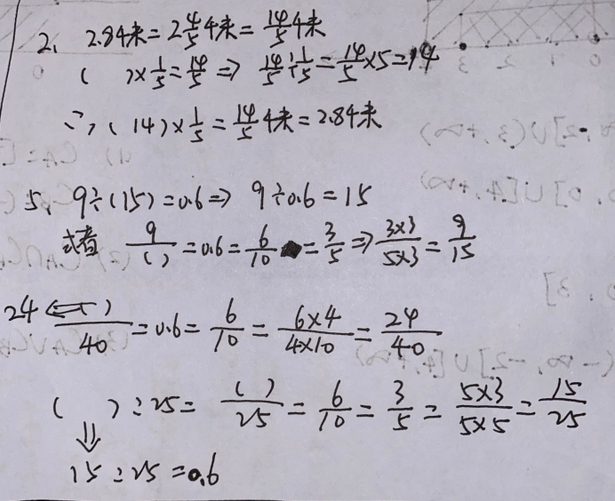 2、 2.84米=2 4/5 4米= 14/5 4米
( )×1/5=14/5 ⇒ 14/5÷1/5=14/5×5=14
∴ (14)×1/5=14/5 4米=2.84米
5、 9÷(15)=0.6⇒ 9÷0.6=15
或者 9/( )=0.6=6/10=3/5⇒3×3/5×3=9/15
24 ⇐( )/40=0.6=6/10=6×4/4×10=24/40
( ):25=( )/25=6/10=3/5=5×3/5×5=15/25
⇓
15:25=0.6